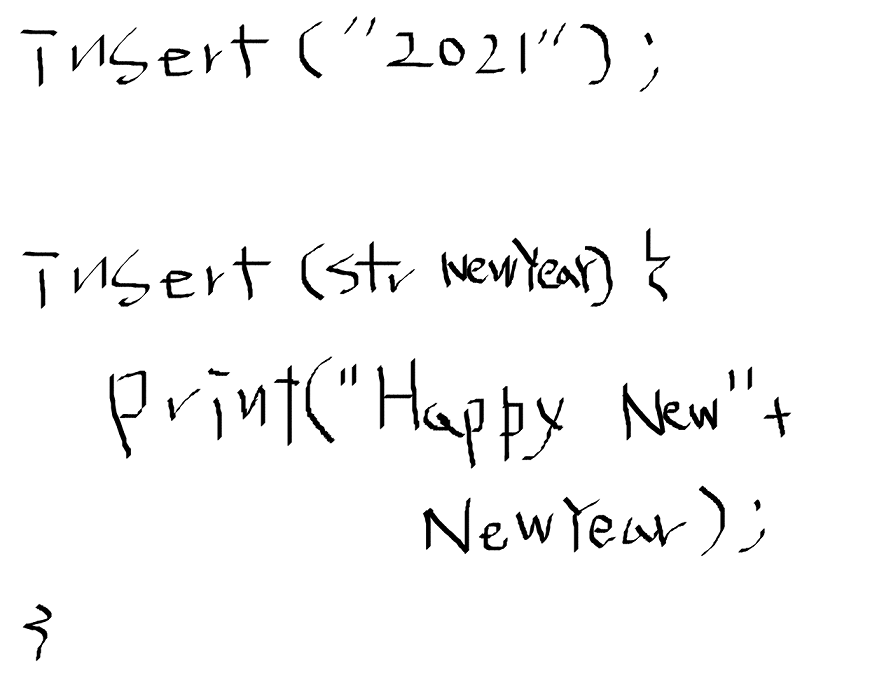 Insert ("2021");
Insert (str NewYear) {
print("Happy New" +
NewYear);
}